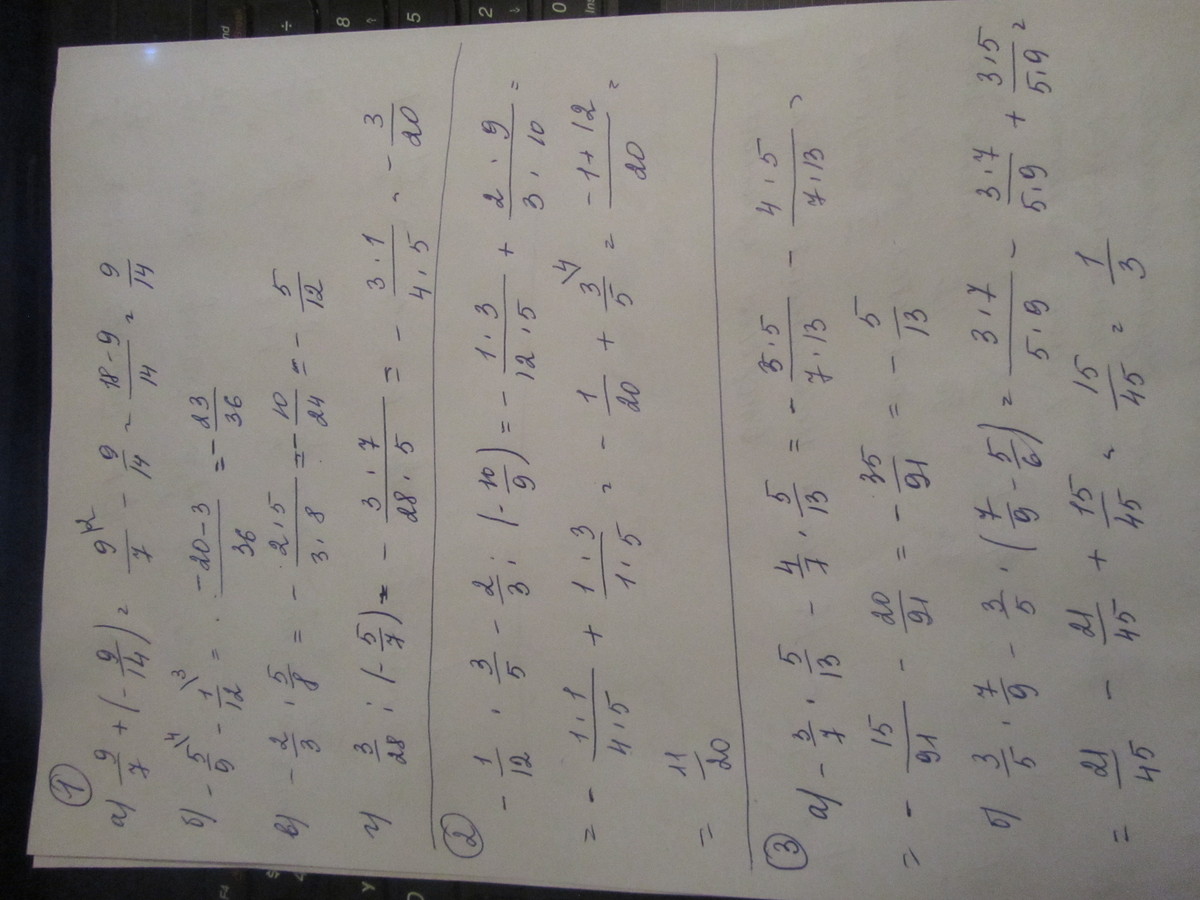 ①
а) 9/7 + (- 9/14) = 9\2/7 - 9/14 = 18-9/14 = 9/14
б) - 5\4/9 - 1\3/12 = -20-3/36 = - 23/36
в) - 2/3 · 5/8 = - 2·5/3·8 = - 10/24 = - 5/12
г) 3/28 : (- 5/7) = - 3·7/28·5 = - 3·1/4·5 = - 3/20
②
- 1/12 · 3/5 - 2/3 : (- 10/9) = - 1·3/12·5 + 2·9/3·10 =
= - 1·1/4·5 + 1·3/1·5 = - 1/20 + 3\4/5 = -1+12/20 =
= 11/20
③
а) - 3/7 · 5/13 - 4/7 · 5/13 = - 3·5/7·13 - 4·5/7·13 =
= - 15/91 - 20/91 = - 35/91 = - 5/13
б) 3/5 · 7/9 - 3/5 · (7/9 - 5/6) = 3·7/5·9 - 3·7/5·9 + 3·5/5·9 =
= 21/45 - 21/45 + 15/45 = 15/45 = 1/3